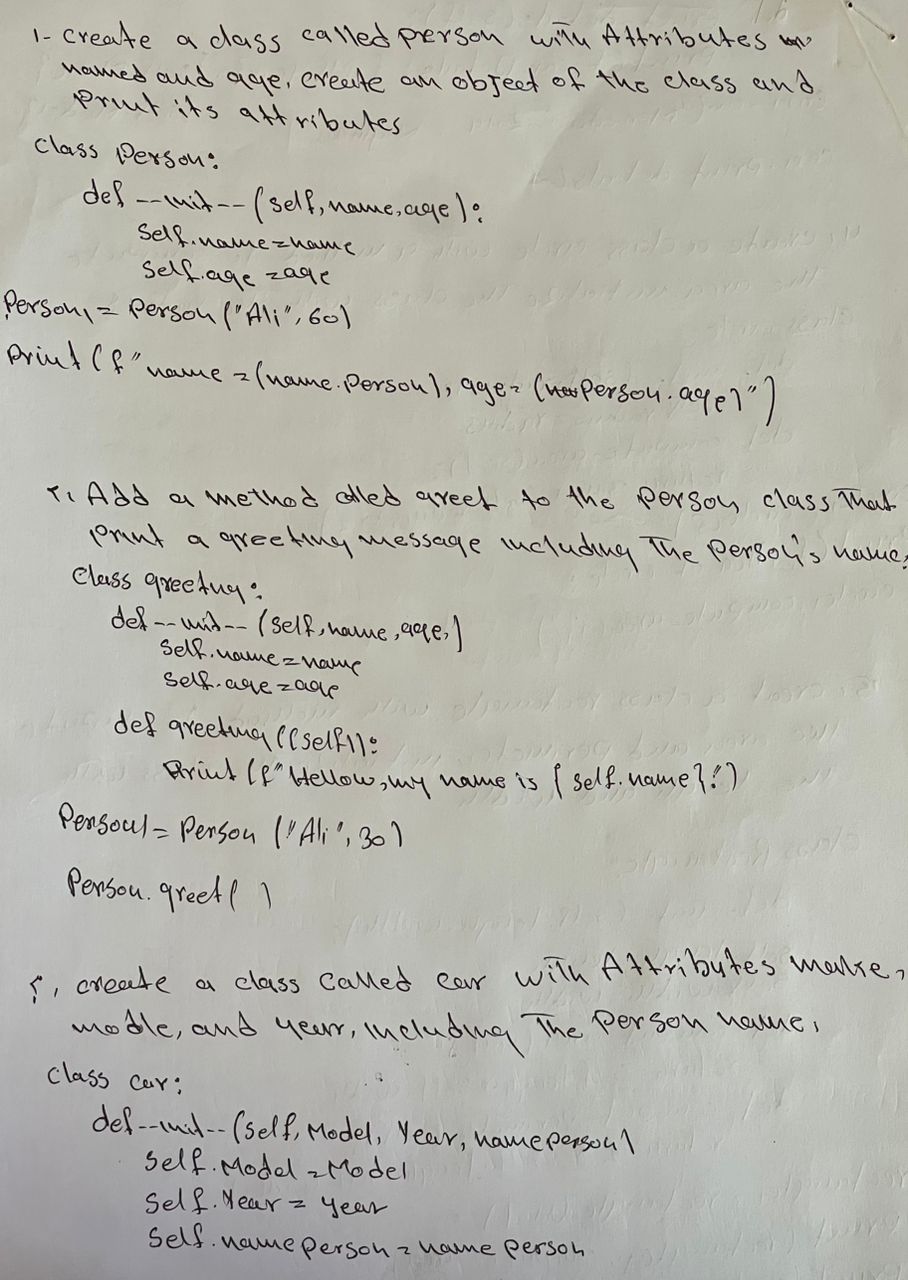 1- create a class called person with Attributes
named and age. create an object of the class and
print its attributes
class Person:
def --init-- (self, name, age):
self.name=name
self.age =age
Person1 = Person ("Ali", 60)
Print (f" name = (name.person), age= (person.age)")
٢. Add a method called greet to the Person class That
print a greeting message including The person's name.
class greeting:
def --init-- (self, name, age,)
self.name=name
self.age=age
def greeting ((self)):
Print (f" Hellow, my name is { self.name}!)
Person1= Person ("Ali", 30)
Person. greet( )
٣. create a class called car with Attributes make,
modle, and year, including The Person name.
class car:
def--init-- (self, Model, Year, nameperson)
self.Model =Model
self.Year = year
self.nameperson = name person